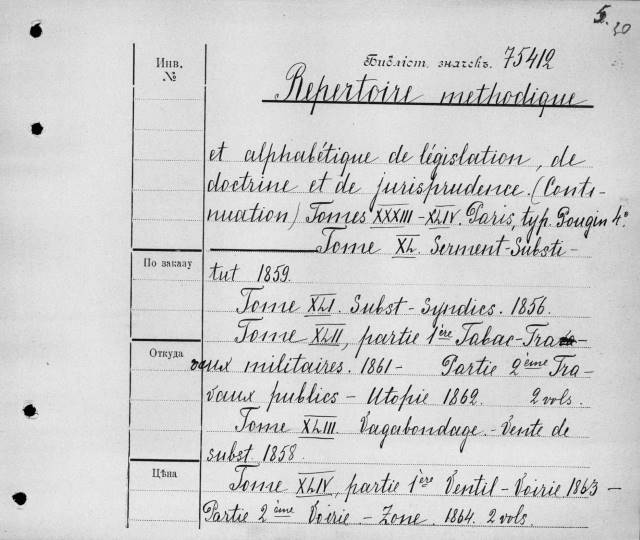 5.20
Инв.
№
Библіот. значекъ. 75412
Repertoire methodique
et alphabétique de législation, de
doctrine et de jurisprudence. (Conti-
nuation) Tomes XXXIII - XLIV. Paris, typ. Pougin 4°.
Tome XL. Serment-Substi-
По заказу
tut 1859.
Tome XLI. Subst-Syndics. 1856.
Tome XLII, partie 1ère Tabac-Tra-
Откуда
vaux militaires. 1861 - Partie 2ème Tra-
vaux publics - Utopie 1862. 2 vols.
Tome XLIII. Vagabondage. - Vente de
subst. 1858.
Цѣна
Tome XLIV, partie 1ère Ventil - Voirie 1863 -
Partie 2ème Voirie - Zone. 1864. 2 vols.